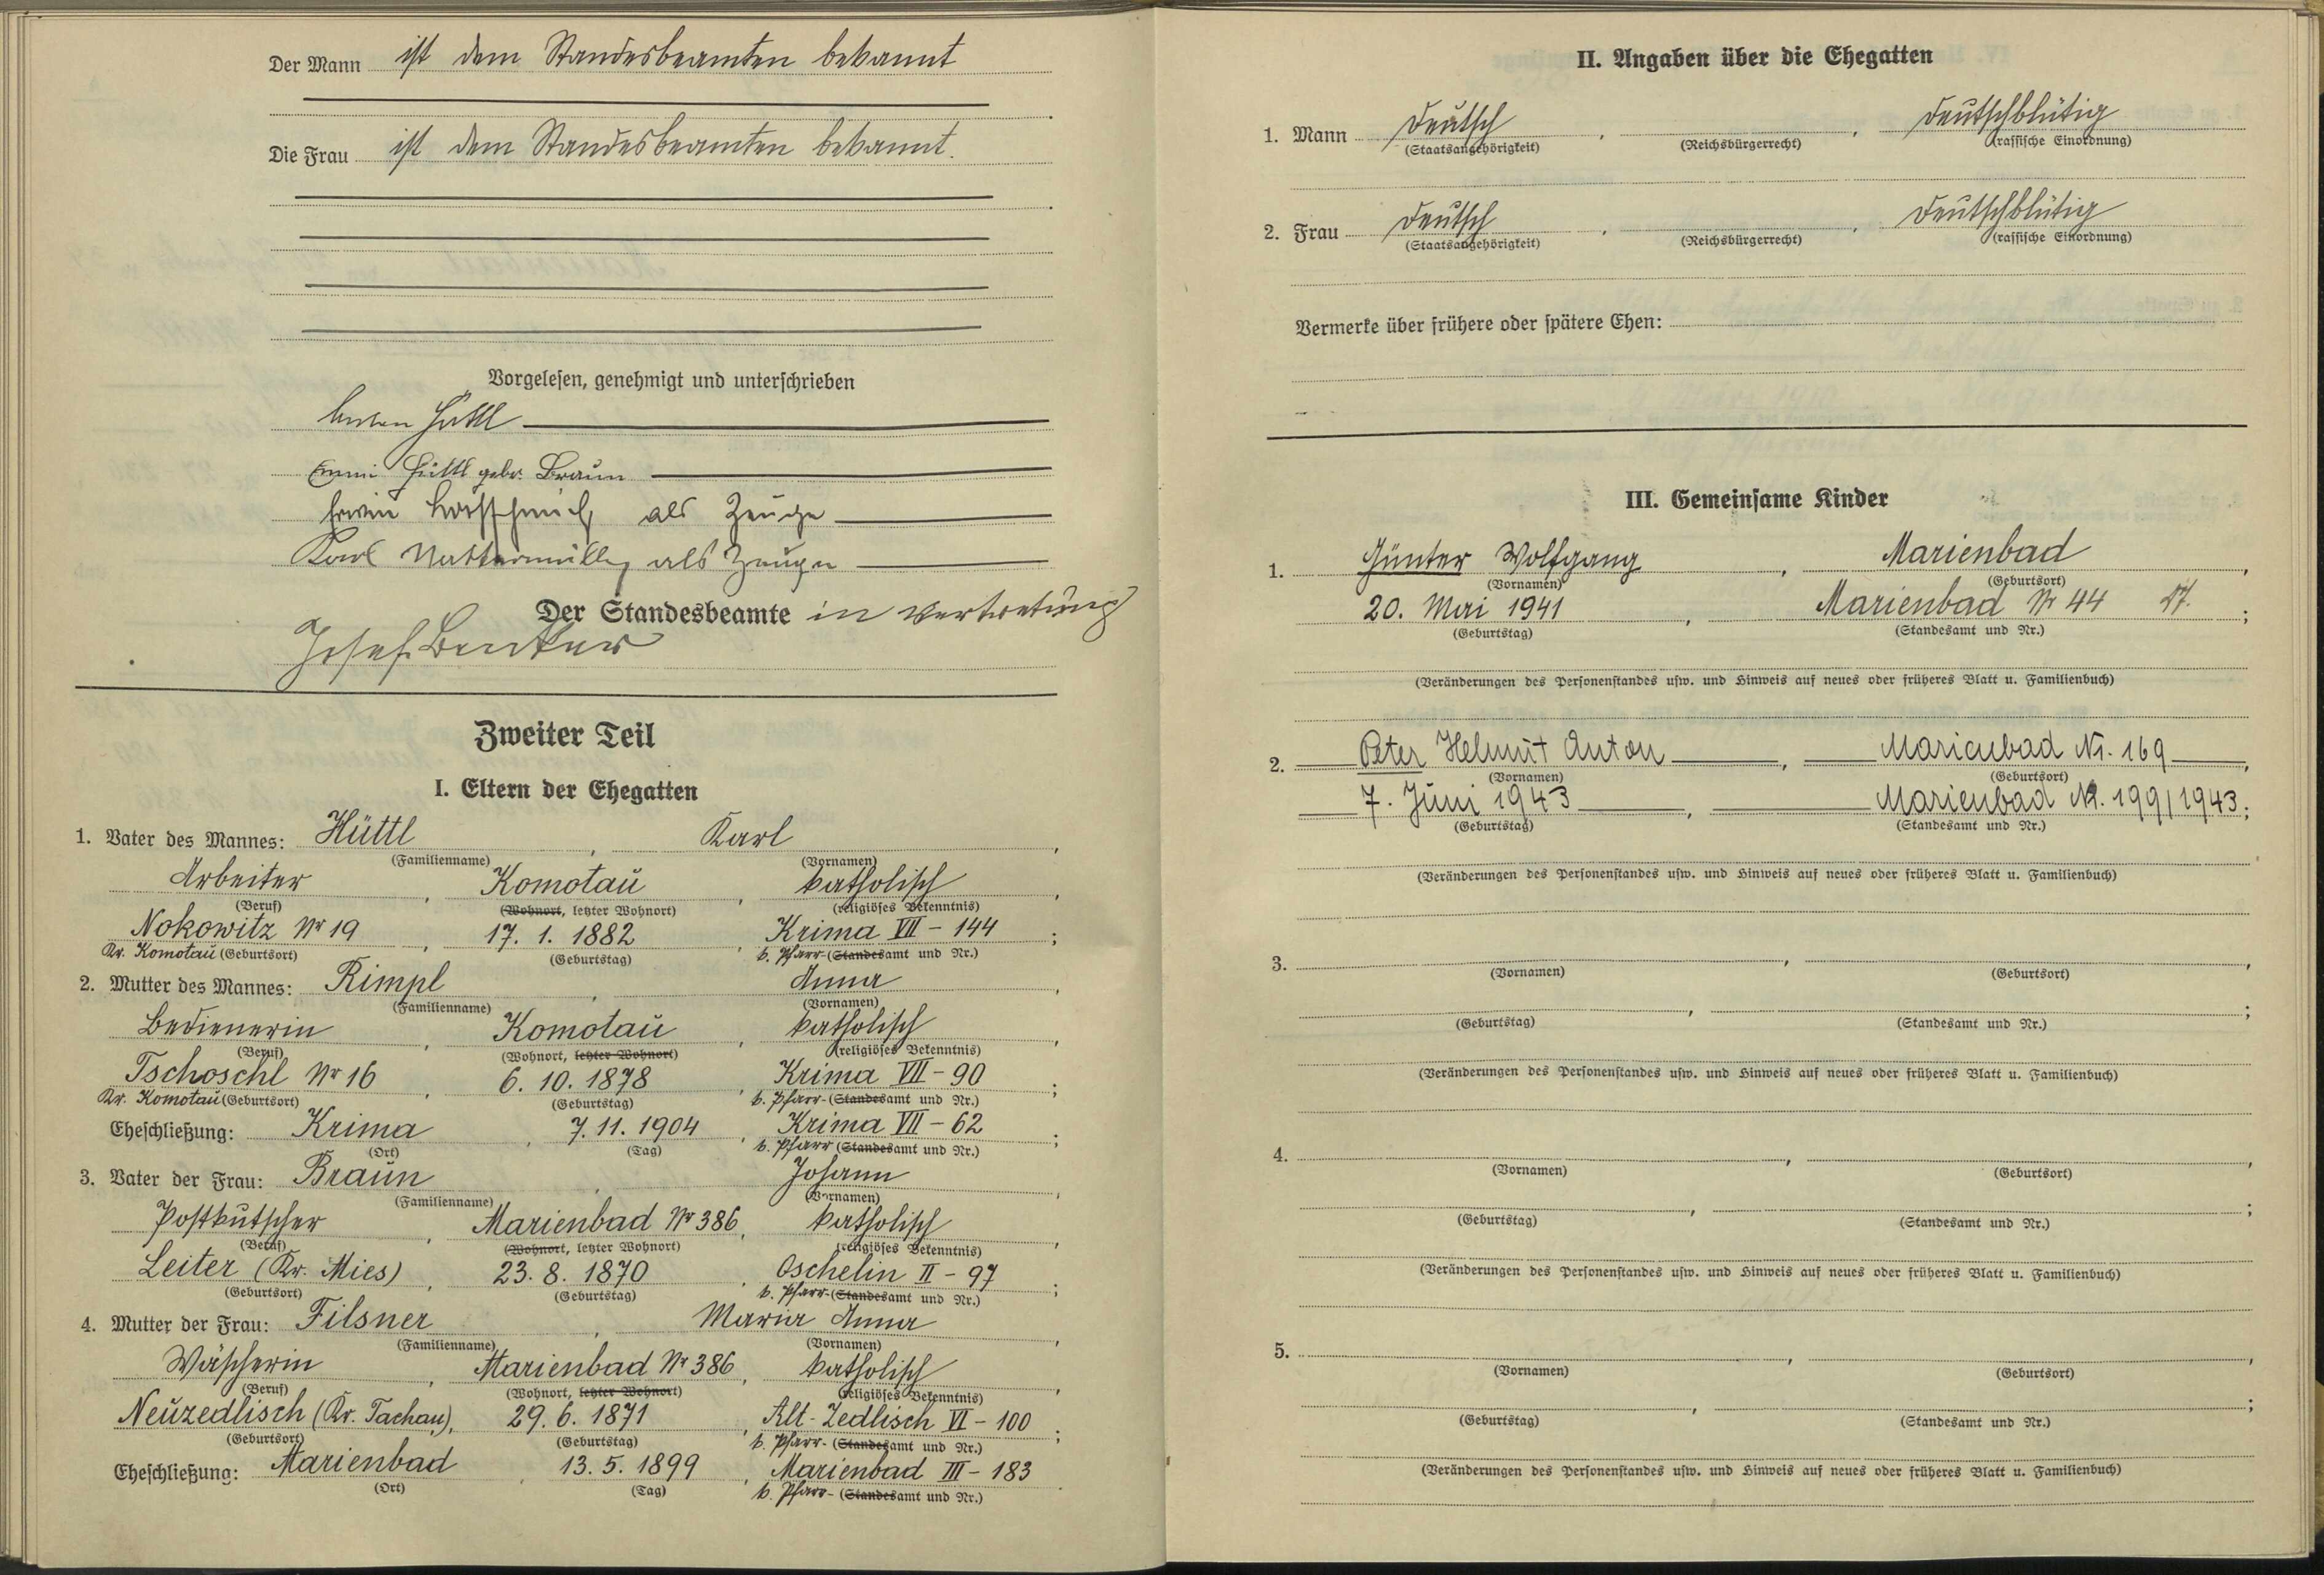 Der Mann ist dem Standesbeamten bekannt
Die Frau ist dem Standesbeamten bekannt.
Vorgelesen, genehmigt und unterschrieben
Anton Hüttl
Emmi Hüttl gebr. Braun
Erwin als Zeuge
Karl als Zeuge
Der Standesbeamte in Vertretung
Josef
Zweiter Teil
I. Eltern der Ehegatten
1. Vater des Mannes: Hüttl, Karl,
(Familienname) (Vornamen)
Arbeiter, Komotau, katholisch,
(Beruf) (Wohnort, letzter Wohnort) (religiöses Bekenntnis)
Nokowitz Nr 19, 17. 1. 1882, Krima VII - 144;
Kr. Komotau (Geburtsort) (Geburtstag) k. Pfarr- (Standesamt und Nr.)
2. Mutter des Mannes: Rimpl, Anna,
(Familienname) (Vornamen)
Bedienerin, Komotau, katholisch,
(Beruf) (Wohnort, letzter Wohnort) (religiöses Bekenntnis)
Tschoschl Nr 16, 6. 10. 1878, Krima VII - 90;
Kr. Komotau (Geburtsort) (Geburtstag) k. Pfarr- (Standesamt und Nr.)
Eheschließung: Krima, 7. 11. 1904, Krima VII - 62;
(Ort) (Tag) k. Pfarr (Standesamt und Nr.)
3. Vater der Frau: Braun, Johann,
(Familienname) (Vornamen)
Postkutscher, Marienbad Nr 386, katholisch,
(Beruf) (Wohnort, letzter Wohnort) (religiöses Bekenntnis)
Leiter (Kr. Mies), 23. 8. 1870, Oschelin II - 97;
(Geburtsort) (Geburtstag) k. Pfarr- (Standesamt und Nr.)
4. Mutter der Frau: Filsner, Maria Anna,
(Familienname) (Vornamen)
Wäscherin, Marienbad Nr 386, katholisch,
(Beruf) (Wohnort, letzter Wohnort) (religiöses Bekenntnis)
Neuzedlisch (Kr. Tachau), 29. 6. 1871, Alt-Zedlisch VI - 100;
(Geburtsort) (Geburtstag) k. Pfarr- (Standesamt und Nr.)
Eheschließung: Marienbad, 13. 5. 1899, Marienbad III - 183
(Ort) (Tag) k. Pfarr- (Standesamt und Nr.)
II. Angaben über die Ehegatten
1. Mann deutsch, , deutschblütig
(Staatsangehörigkeit) (Reichsbürgerrecht) (rassische Einordnung)
2. Frau deutsch, , deutschblütig
(Staatsangehörigkeit) (Reichsbürgerrecht) (rassische Einordnung)
Vermerke über frühere oder spätere Ehen:
III. Gemeinsame Kinder
1. Günter Wolfgang, Marienbad,
(Vornamen) (Geburtsort)
20. Mai 1941, Marienbad Nr 44;
(Geburtstag) (Standesamt und Nr.)
(Veränderungen des Personenstandes usw. und Hinweis auf neues oder früheres Blatt u. Familienbuch)
2. Peter Helmut Anton, Marienbad Nr. 169,
(Vornamen) (Geburtsort)
7. Juni 1943, Marienbad Nr. 199/1943;
(Geburtstag) (Standesamt und Nr.)
(Veränderungen des Personenstandes usw. und Hinweis auf neues oder früheres Blatt u. Familienbuch)
3. , ,
(Vornamen) (Geburtsort)
, ;
(Geburtstag) (Standesamt und Nr.)
(Veränderungen des Personenstandes usw. und Hinweis auf neues oder früheres Blatt u. Familienbuch)
4. , ,
(Vornamen) (Geburtsort)
, ;
(Geburtstag) (Standesamt und Nr.)
(Veränderungen des Personenstandes usw. und Hinweis auf neues oder früheres Blatt u. Familienbuch)
5. , ,
(Vornamen) (Geburtsort)
, ;
(Geburtstag) (Standesamt und Nr.)
(Veränderungen des Personenstandes usw. und Hinweis auf neues oder früheres Blatt u. Familienbuch)